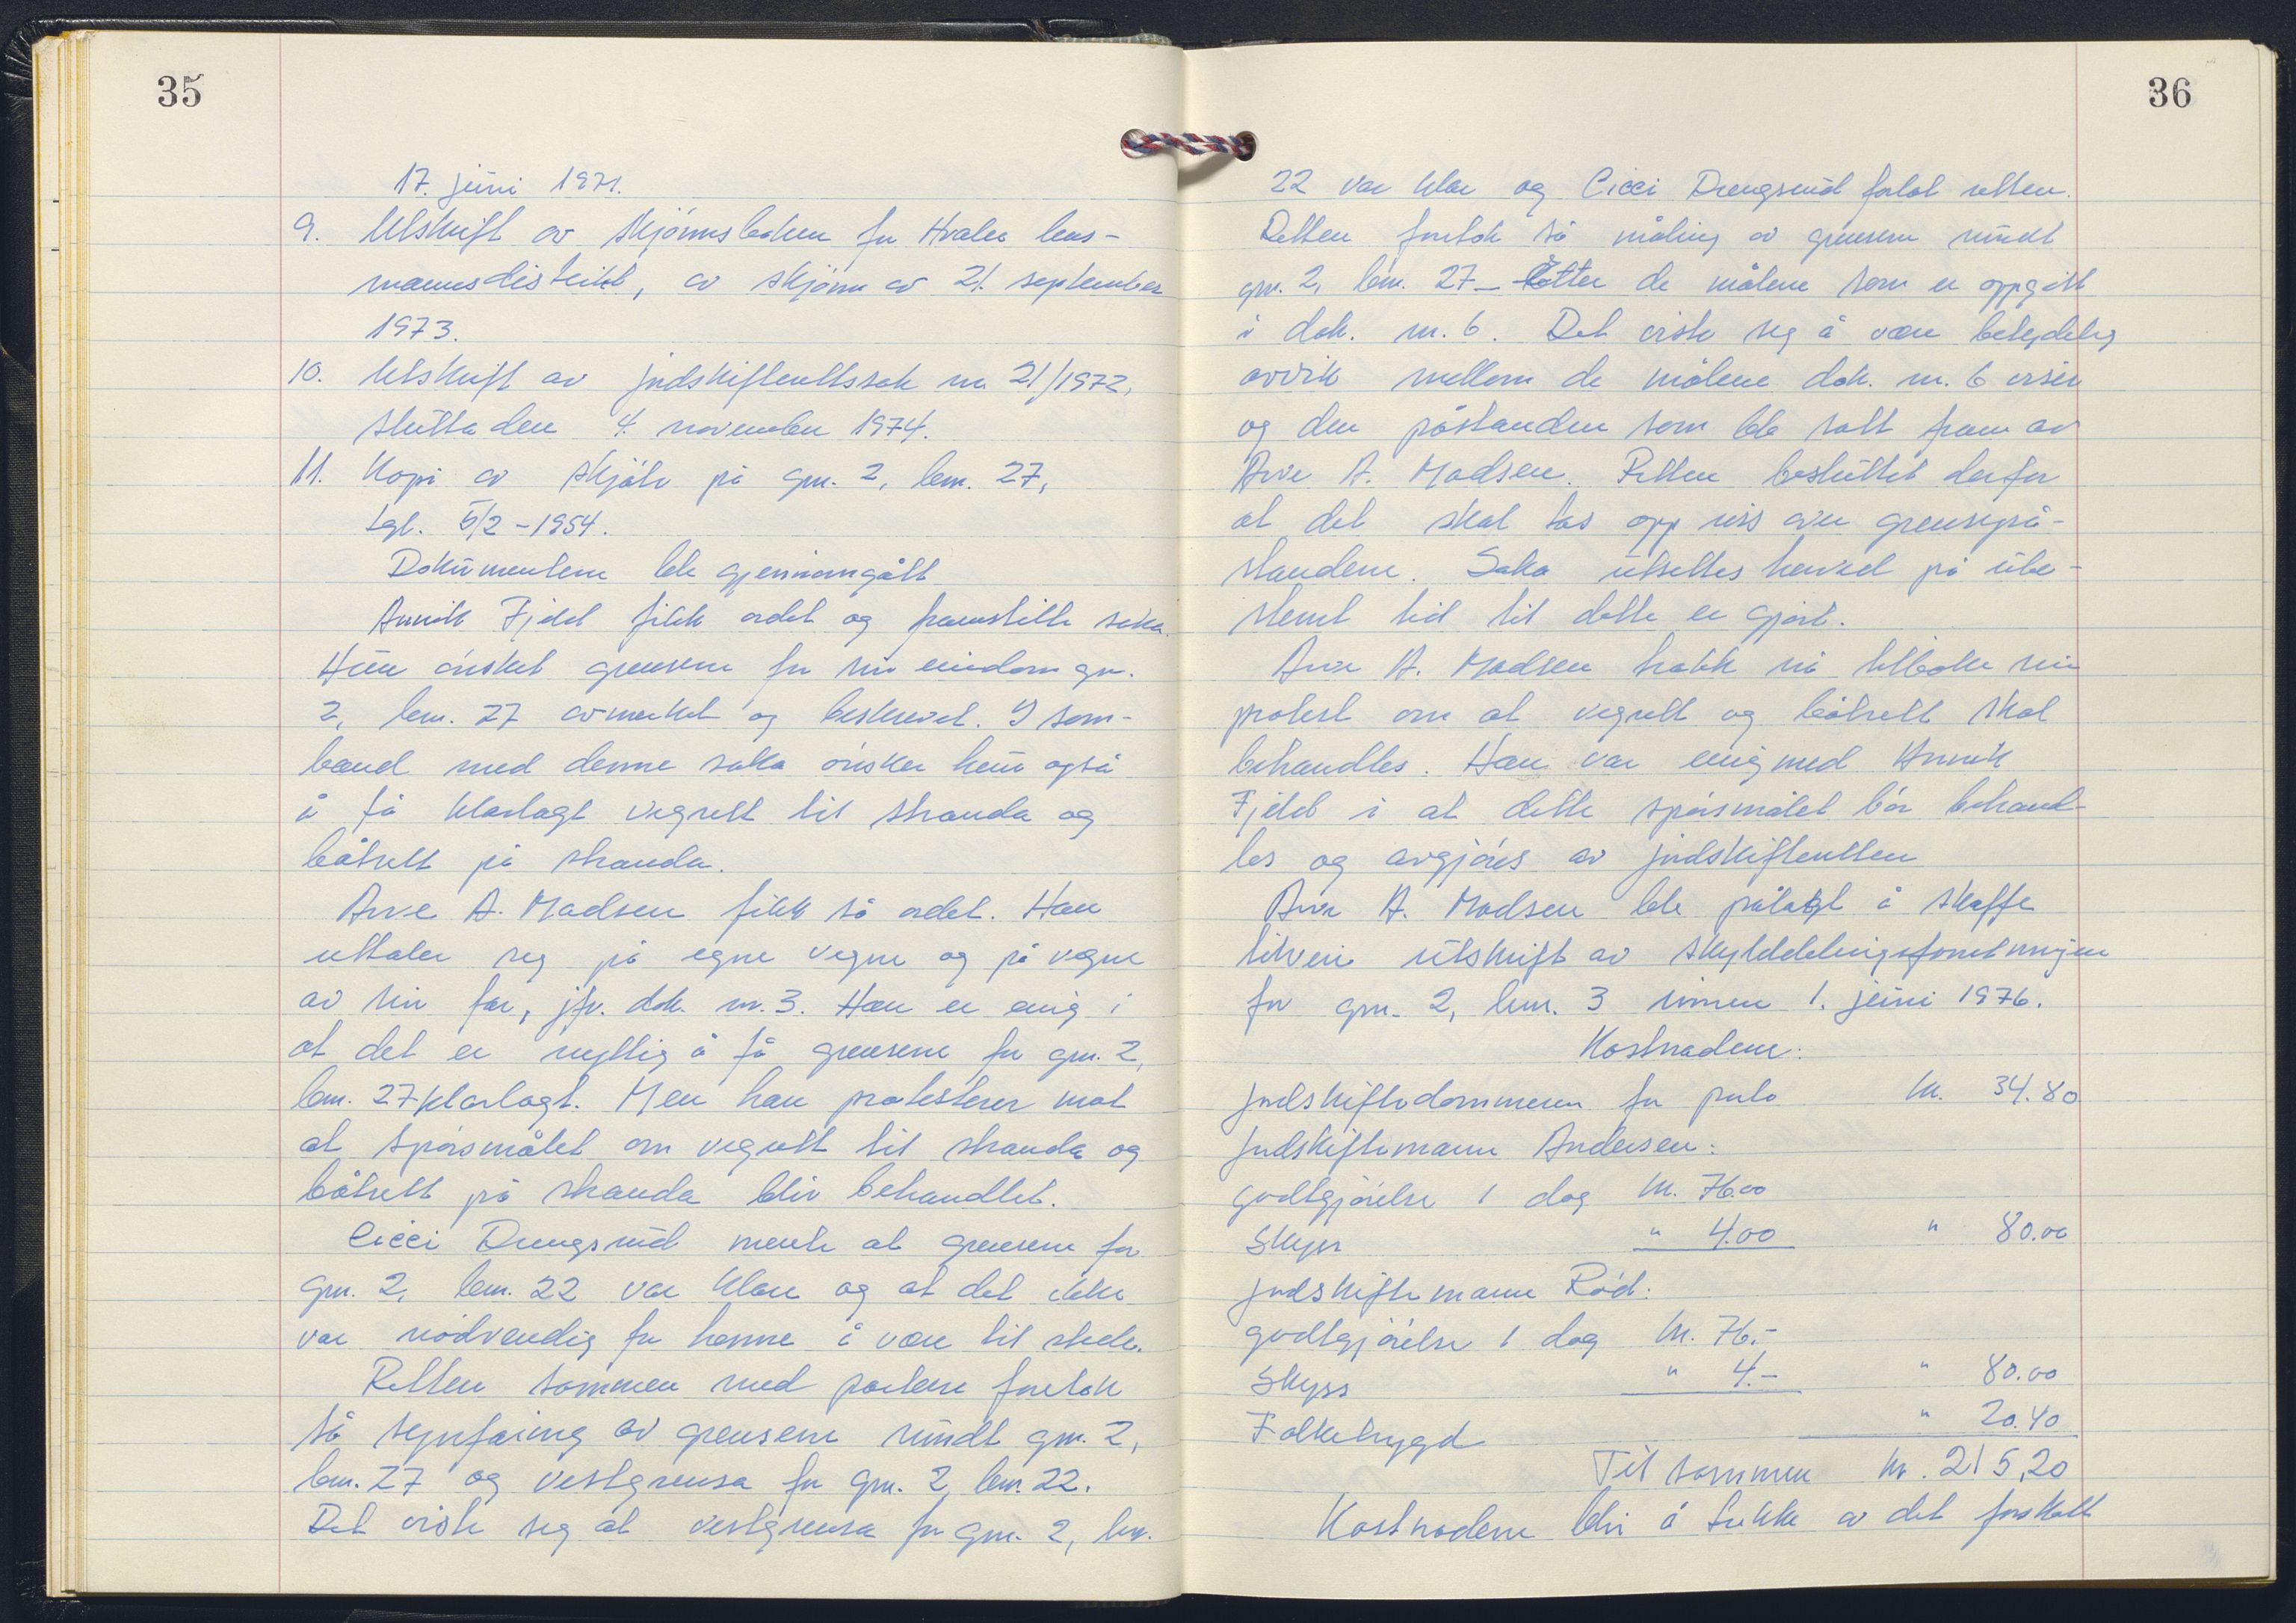 35
17. juni 1971.
9. Utskrift av skjønnsboken for Hvaler lens-
mannsdistrikt, av skjønn av 21. september
1973.
10. Utskrift av jordskifterettssak nr. 21/1972,
slutta den 4. november 1974.
11. Kopi av skjøte på gnr. 2, bnr. 27,
tgl. 5/2-1954.
Dokumentene ble gjennomgått
Annik Fjeld fikk ordet og framstilte saka.
Hun ønsket grensene for sin eiendom gnr.
2, bnr. 27 avmerket og beskrevet. I sam-
band med denne saka ønsker hun også
å få klarlagt vegrett til stranda og
båtrett på stranda.
Arve A. Madsen fikk så ordet. Han
uttaler seg på egne vegne og på vegne
av sin far, jfr. dok. nr. 3. Han er enig i
at det er nyttig å få grensene for gnr. 2,
bnr. 27 klarlagt. Men han protesterer mot
at spørsmålet om vegrett til stranda og
båtrett på stranda blir behandlet.
Cicci Drengsrud mente at grensene for
gnr. 2, bnr. 22 var klare og at det ikke
var nødvendig for henne å være til stede.
Retten sammen med partene foretok
så synfaring av grensene rundt gnr. 2,
bnr. 27 og vestgrensa for gnr. 2, bnr. 22.
Det viste seg at vestgrensa for gnr. 2, bnr.
36
22 var klar og Cicci Drengsrud forlot retten.
Retten foretok så måling av grensene rundt
gnr. 2, bnr. 27 - etter de målene som er oppgitt
i dok. nr. 6. Det viste seg å være betydelig
avvik mellom de målene dok. nr. 6 viser
og den påstanden som ble satt fram av
Arve A. Madsen. Retten besluttet derfor
at det skal tas opp riss over grensepå-
standene. Saka utsettes herved på ube-
stemt tid til dette er gjort.
Arve A. Madsen trakk nå tilbake sin
protest om at vegrett og båtrett skal
behandles. Han var enig med Annik
Fjeld i at dette spørsmålet bør behand-
les og avgjøres av jordskifteretten
Arve A. Madsen ble pålagt å skaffe
tilveie utskrift av skylddelingsforretningen
for gnr. 2, bnr. 3 innen 1. juni 1976.
Kostnadene:
Jordskiftedommeren for porto kr. 34.80
Jordskiftemann Andersen:
godtgjørelse 1 dag kr. 76.00
Skyss " 4.00 " 80.00
Jordskiftemann Rød:
godtgjørelse 1 dag kr. 76.-
Skyss " 4.- " 80.00
Folketrygd " 20.40
Til sammen kr. 215,20
Kostnadene blir å trekke av det forskott